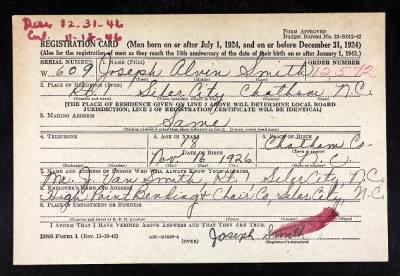 Disc 12-31-46
Enl. 11-18-46
Form Approved
Budget Bureau No. 33-R012-42
REGISTRATION CARD (Men born on or after July 1, 1924, and on or before December 31, 1924)
(Also for the registration of men as they reach the 18th anniversary of the date of their birth on or after January 1, 1943.)
SERIAL NUMBER 1. NAME (Print) ORDER NUMBER
W 609 Joseph Alvin Smith 12,572
(First) (Middle) (Last)
2. PLACE OF RESIDENCE (Print)
Siler City Chatham N.C.
[THE PLACE OF RESIDENCE GIVEN ON LINE 2 ABOVE WILL DETERMINE LOCAL BOARD
JURISDICTION; LINE 2 OF REGISTRATION CERTIFICATE WILL BE IDENTICAL]
3. MAILING ADDRESS
Same
4. TELEPHONE 5. AGE IN YEARS 6. PLACE OF BIRTH
18 Chatham Co.
DATE OF BIRTH
Nov. 16 1926 N.C.
7. NAME AND ADDRESS OF PERSON WHO WILL ALWAYS KNOW YOUR ADDRESS
Mr. J. Van Smith, Rt. 1, Siler City, N.C.
8. EMPLOYER'S NAME AND ADDRESS
High Point Bending & Chair Co, Siler City, N.C.
9. PLACE OF EMPLOYMENT OR BUSINESS
I AFFIRM THAT I HAVE VERIFIED ABOVE ANSWERS AND THAT THEY ARE TRUE.
DSS Form 1 (Rev. 11-16-42) (OVER) Joseph Smith
(Registrant's signature)